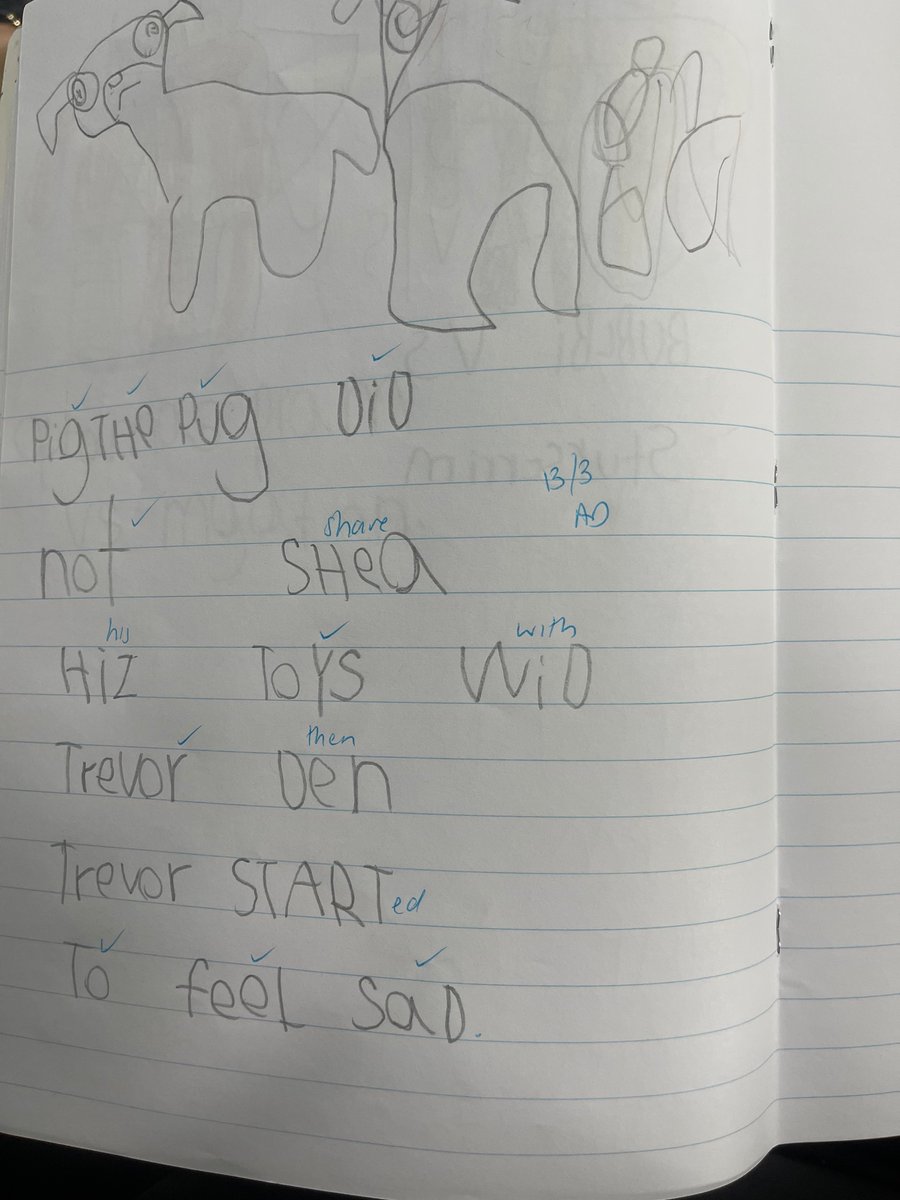 PigTHe Pug DiD
13/3
not share SHeA AD
his with
HiZ ToYS WiD
then
Trevor Den
Trevor STARTed
To feeL SaD.